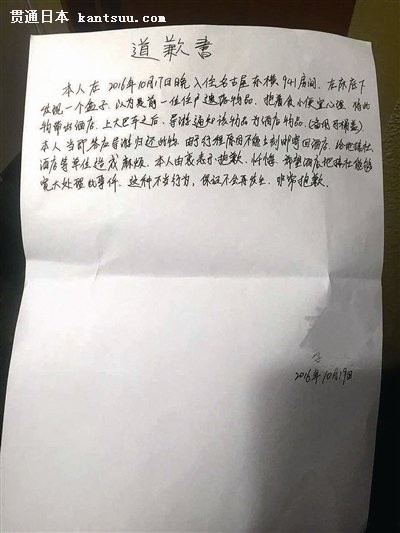 贯通日本 kantsuu.com
道歉書
本人在 2016年10月17日晚入住名古屋东横 941房间、在床底下
发现一个盒子、以为是前一位住户遗落物品、抱着贪小便宜心理、将此
物带出酒店、上大巴车之后、导游通知该物品为酒店物品、(备用马桶盖)
本人当即答应导游归还此物、由于行程原因不能立刻邮寄回酒店、给地接社、
酒店等单位造成麻烦、本人由衷表示抱歉、忏悔、希望酒店地接社能够
宽大处理此事件、这种不当行为、保证不会再发生、非常抱歉、
2016年10月19日